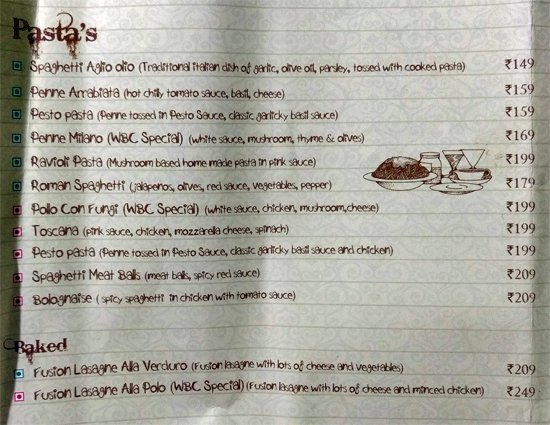 Pasta's
Spaghetti Aglio olio (Traditional italian dish of garlic, olive oil, parsley, tossed with cooked pasta) ₹149
Penne Arrabiata (hot chilly tomato sauce, basil, cheese) ₹159
Pesto pasta (Penne tossed in Pesto Sauce, classic garlicky basil sauce) ₹159
Penne Milano (WBC Special) (white sauce, mushroom, thyme & olives) ₹169
Ravioli Pasta (Mushroom based home made pasta in pink sauce) ₹199
Roman Spaghetti (jalapenos, olives, red sauce, vegetables, pepper) ₹179
Pollo Con Fungi (WBC Special) (white sauce, chicken, mushroom,cheese) ₹199
Toscana (pink sauce, chicken, mozzarella cheese, spinach) ₹199
Pesto pasta (Penne tossed in Pesto Sauce, classic garlicky basil sauce and chicken) ₹199
Spaghetti Meat Balls (meat balls, spicy red sauce) ₹209
Bolognaise ( spicy spaghetti in chicken with tomato sauce) ₹209
Baked
Fusion Lasagne Alla Verduro (Fusion lasagne with lots of cheese and vegetables) ₹209
Fusion Lasagne Alla Polo (WBC Special) (Fusion lasagne with lots of cheese and minced chicken) ₹249